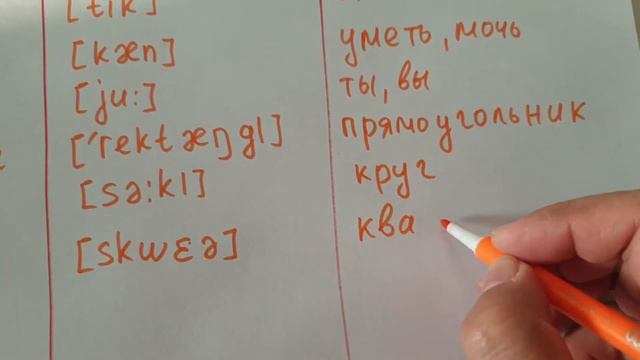 [kæn] уметь, мочь
[ju:] ты, вы
['rektæŋgl] прямоугольник
[sə:kl] круг
[skwɛə] ква